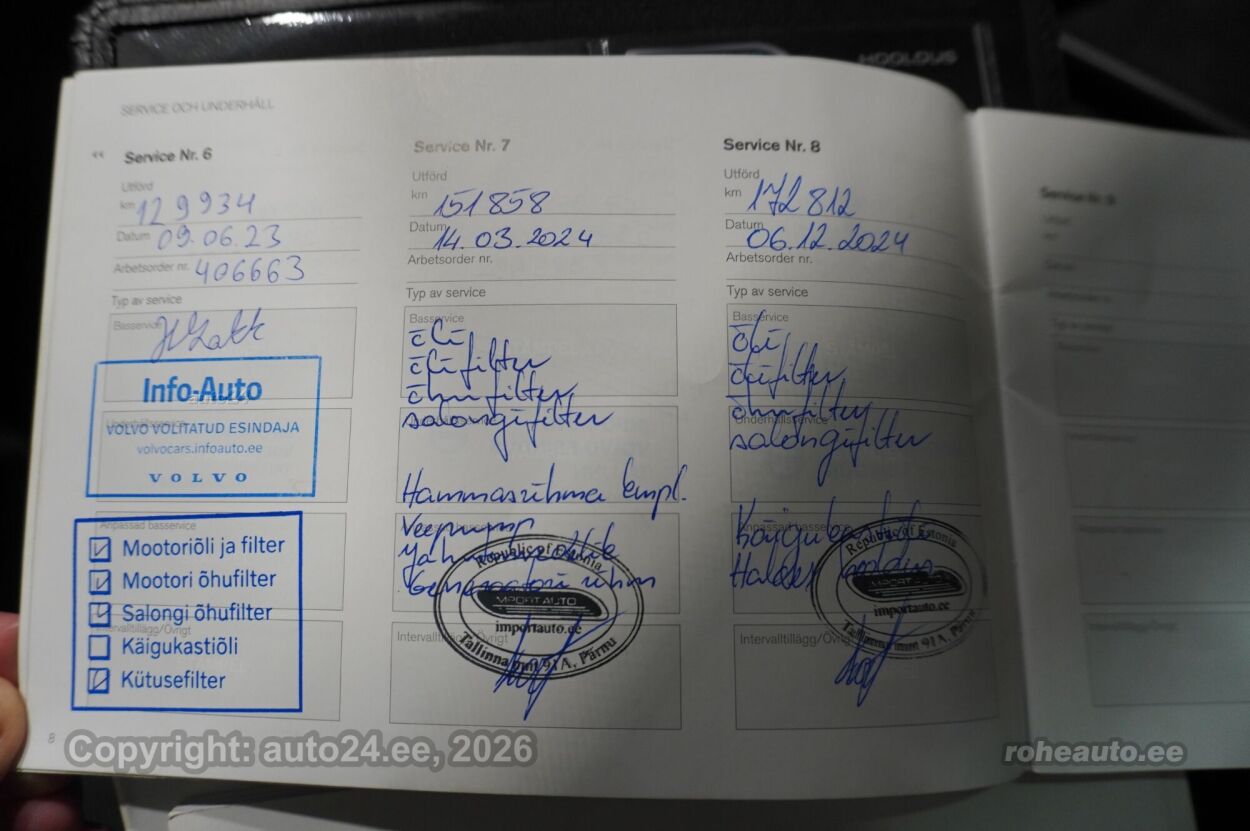 HOOLDUS
SERVICE OCH UNDERHÅLL
Service Nr. 6
Utförd
km 129934
Datum 09.06.23
Arbetsorder nr. 406663
Typ av service
Basservice
Info-Auto
VOLVO VOLITATUD ESINDAJA
volvocars.infoauto.ee
VOLVO
Anpassad basservice
Mootoriõli ja filter
Mootori õhufilter
Salongi õhufilter
Intervalltillägg/Övrigt
Käigukastiõli
Kütusefilter
8
Service Nr. 7
Utförd
km 151858
Datum 14.03.2024
Arbetsorder nr.
Typ av service
Basservice
õli
õlifilter
õhufilter
salongifilter
Hammasrihma kmpl.
Anpassad basservice
Veepump
Generaatori rihm
Republic of Estonia
IMPORTAUTO
importauto.ee
Tallinna mnt 91A, Pärnu
Intervalltillägg/Övrigt
Service Nr. 8
Utförd
km 172812
Datum 06.12.2024
Arbetsorder nr.
Typ av service
Basservice
õli
õlifilter
õhufilter
Underhållsservice
salongifilter
Anpassad basservice
Haldex hooldus
Republic of Estonia
IMPORTAUTO
importauto.ee
Tallinna mnt 91A, Pärnu
Intervalltillägg/Övrigt
Service Nr. 9
Copyright: auto24.ee, 2026
roheauto.ee